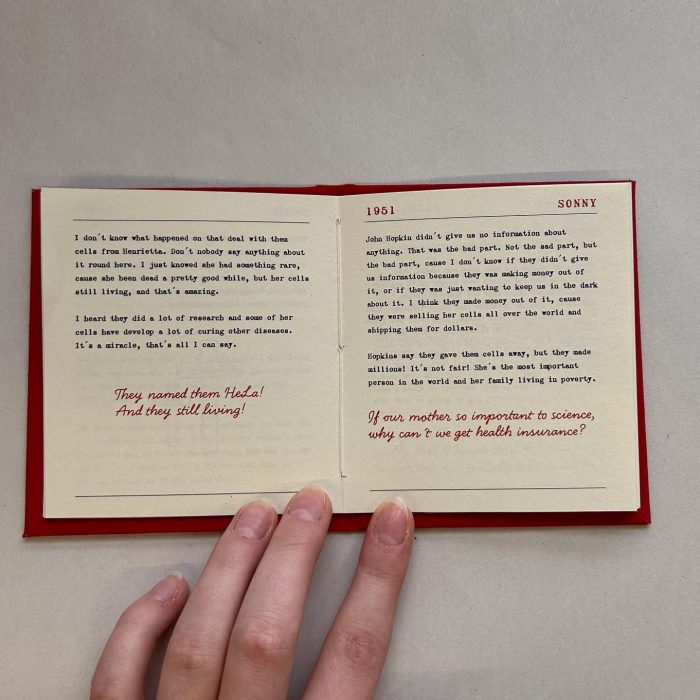 I don't know what happened on that deal with them
cells from Henrietta. Don't nobody say anything about
it round here. I just knowed she had something rare,
cause she been dead a pretty good while, but her cells
still living, and that's amazing.
I heard they did a lot of research and some of her
cells have develop a lot of curing other diseases.
It's a miracle, that's all I can say.
They named them HeLa!
And they still living!
1951 SONNY
John Hopkin didn't give us no information about
anything. That was the bad part. Not the sad part, but
the bad part, cause I don't know if they didn't give
us information because they was making money out of
it, or if they was just wanting to keep us in the dark
about it. I think they made money out of it, cause
they were selling her cells all over the world and
shipping them for dollars.
Hopkins say they gave them cells away, but they made
millions! It's not fair! She's the most important
person in the world and her family living in poverty.
If our mother so important to science,
why can't we get health insurance?